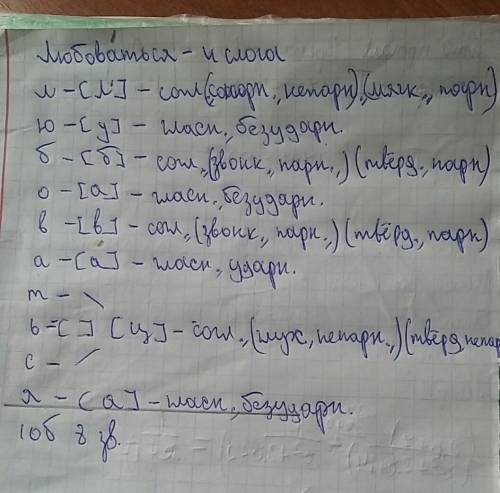 Любоваться - 4 слога
л - [л'] - согл., (сонорн., непарн.), (мягк., парн)
ю - [у] - гласн., безударн.
б - [б] - согл., (звонк., парн.,) (твёрд., парн)
о - [а] - гласн., безударн.
в - [в] - согл., (звонк., парн.,) (твёрд., парн)
а - [а] - гласн., ударн.
т - \
ь - [ ] [ц] - согл., (глух, непарн.,) (твёрд, непар
с - /
я - [а] - гласн., безударн.
10б 8 зв.